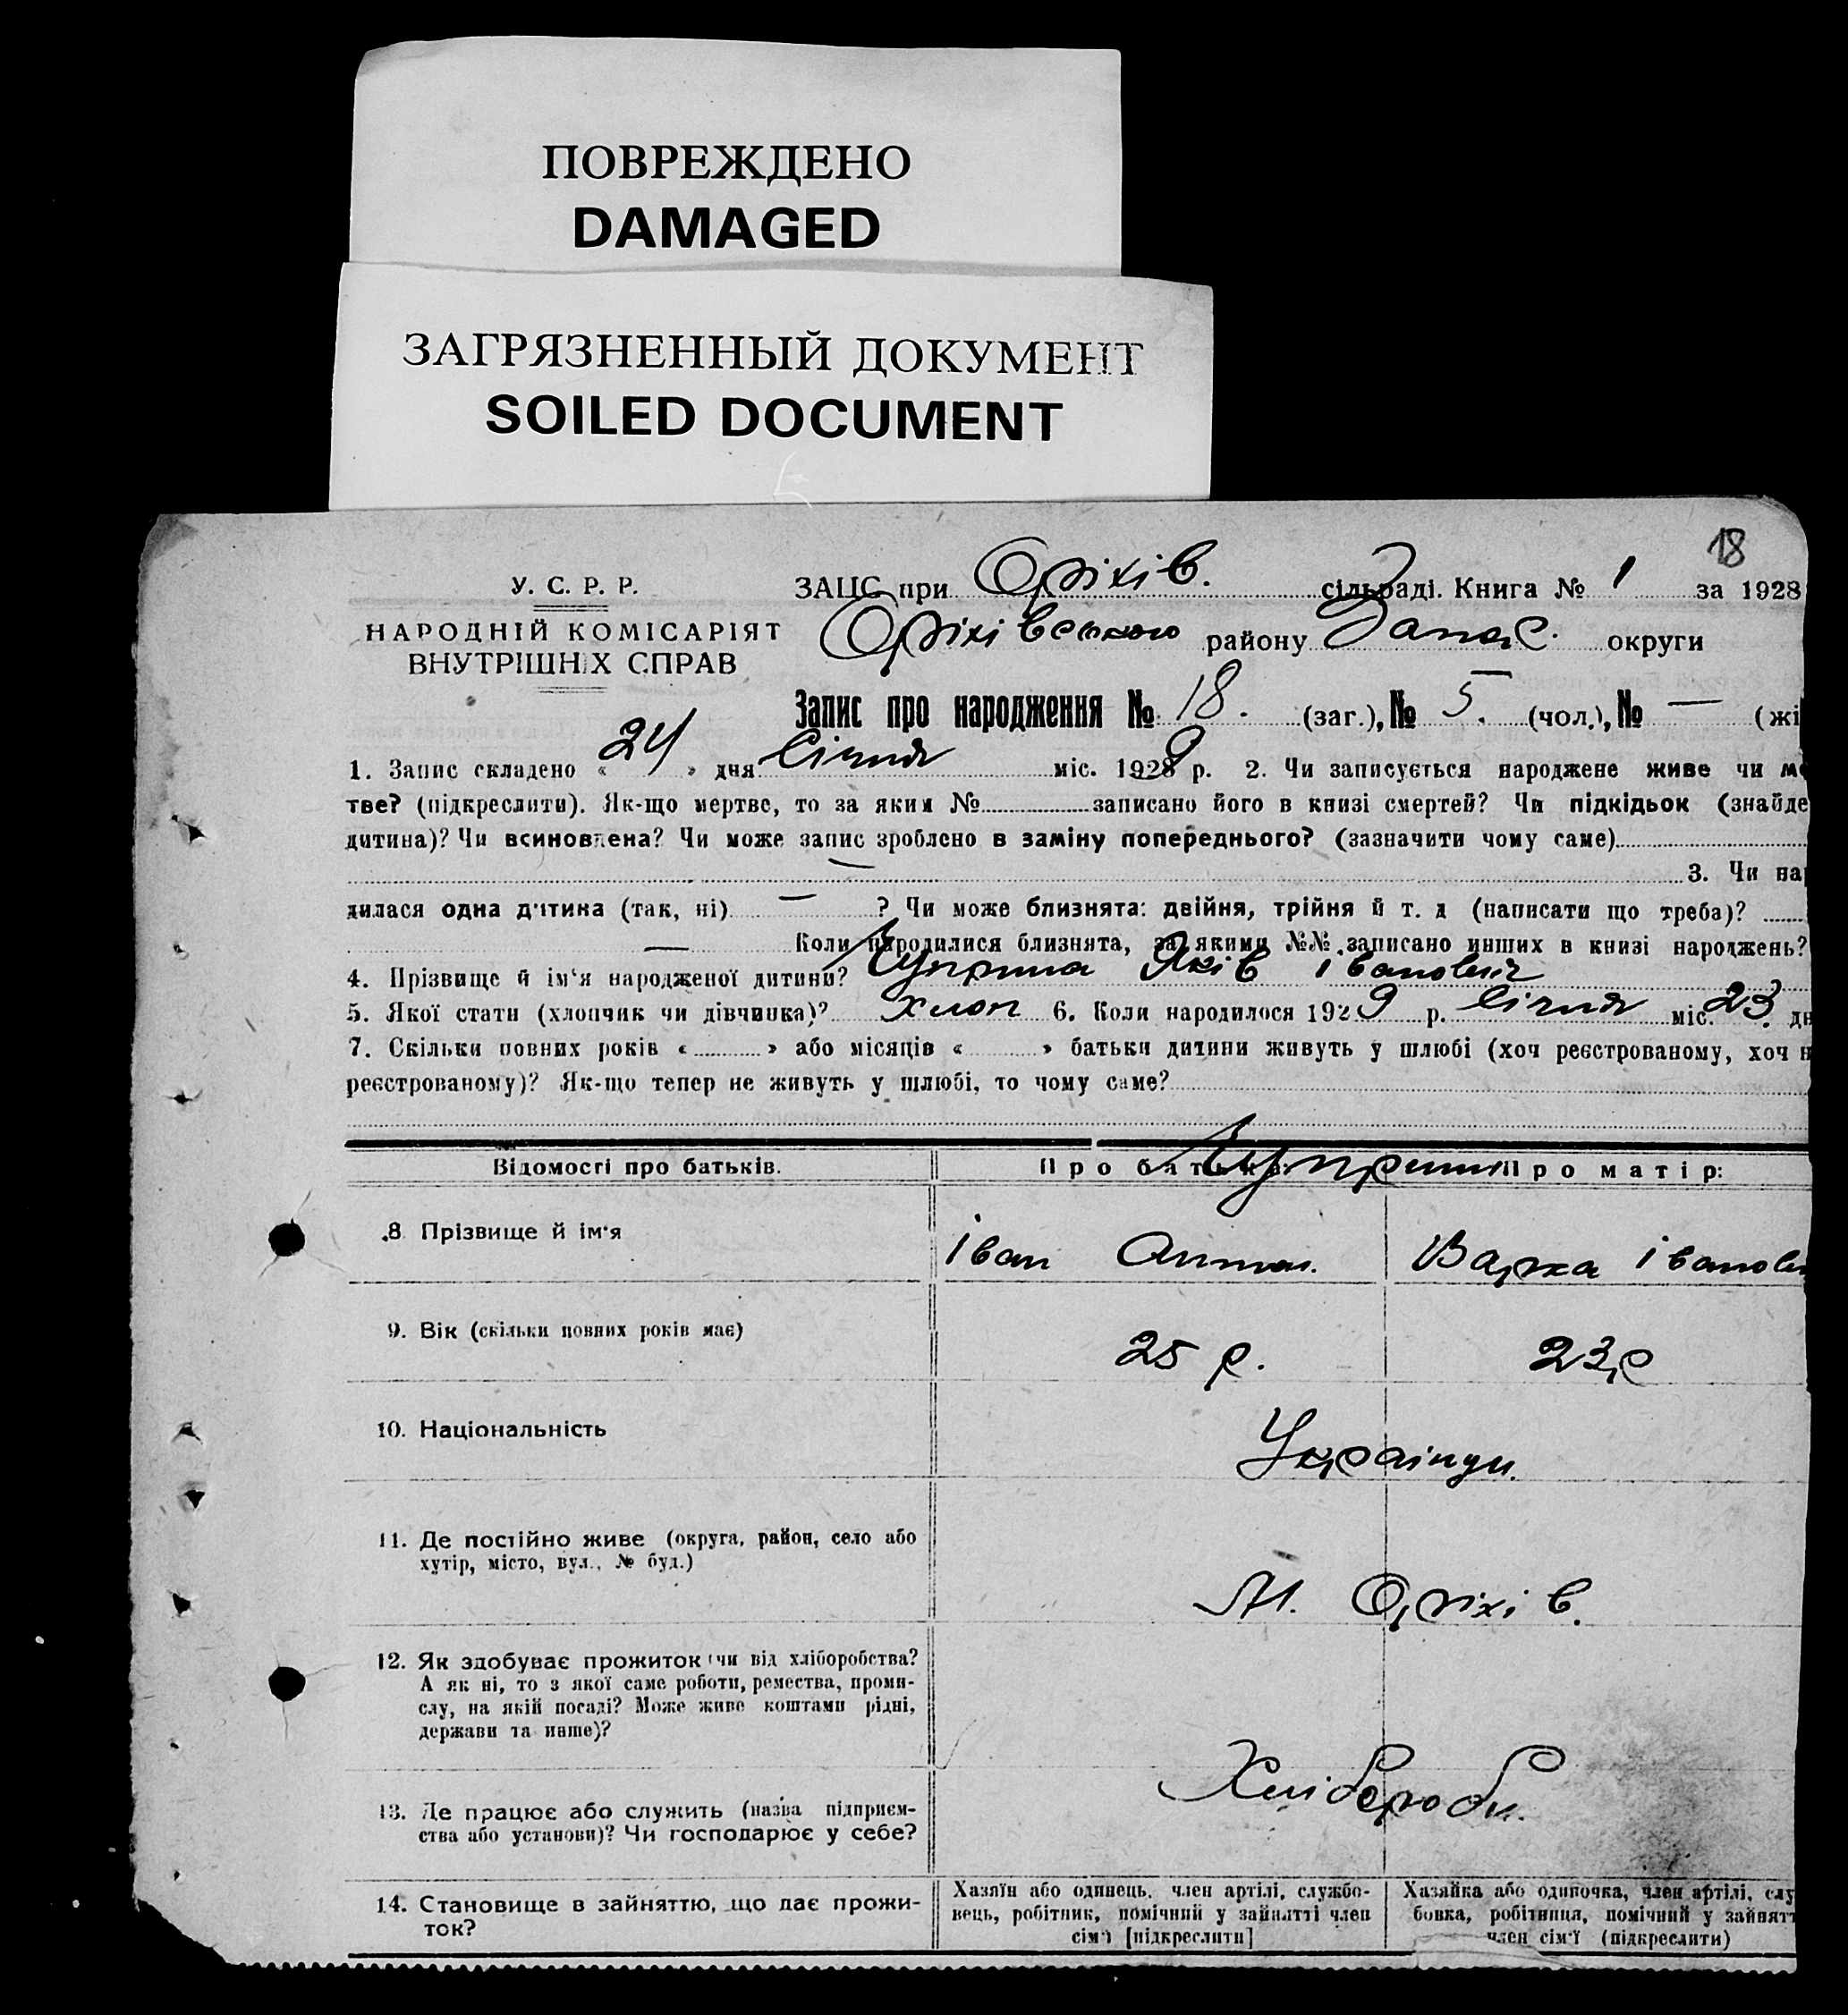 ПОВРЕЖДЕНО
DAMAGED
ЗАГРЯЗНЕННЫЙ ДОКУМЕНТ
SOILED DOCUMENT
18
У. С. Р. Р.
НАРОДНІЙ КОМІСАРІЯТ
ВНУТРІШНІХ СПРАВ
ЗАЦС при Оріхів. сільраді. Книга № 1 за 1928
Оріхівського району Запор. округи
Запис про народження № 18. (заг.), № 5. (чол.), № — (жі
1. Запис складено « 24 » дня Січня міс. 1929 р. 2. Чи записується народжене живе чи ме
тве? (підкреслити). Як-що мертве, то за яким № записано його в книзі смертей? Чи підкідьок (знайде
дитина)? Чи всиновлена? Чи може запис зроблено в заміну попереднього? (зазначити чому саме)
— 3. Чи нар
дилася одна дитина (так, ні) — ? Чи може близнята: двійня, трійня й т. д (написати що треба)?
— Коли народилися близнята, за якими №№ записано инших в книзі народжень?
4. Прізвище й ім'я народженої дитини? Чуприна Яків Іванович
5. Якої стати (хлопчик чи дівчинка)? хлоп 6. Коли народилося 1929 р. Січня міс. 23. дн
7. Скільки повних років « » або місяців « » батьки дитини живуть у шлюбі (хоч реєстрованому, хоч н
реєстрованому)? Як-що тепер не живуть у шлюбі, то чому саме?
Відомості про батьків. Про батька: Про матір:
Чуприни
8 Прізвище й ім'я Іван Антон. Варка Іванов
9. Вік (скільки повних років має) 25 р. 23 р
10. Національність Українці.
11. Де постійно живе (округа, район, село або
хутір, місто, вул., № буд.)
М. Оріхів.
12. Як здобуває прожиток (чи від хліборобства?
А як ні, то з якої саме роботи, ремества, проми-
слу, на якій посаді? Може живе коштами рідні,
держави та инше)?
Хлібороби.
13. Де працює або служить (назва підприєм-
ства або установи)? Чи господарює у себе?
14. Становище в зайняттю, що дає прожи-
ток?
Хазяїн або одинець, член артілі, службо-
вець, робітник, помічний у зайнятті член
сім'ї [підкреслити]
Хазяйка або одиночка, член артілі, слу
бовка, робітниця, помічний у зайнятт
член сім'ї (підкреслити)